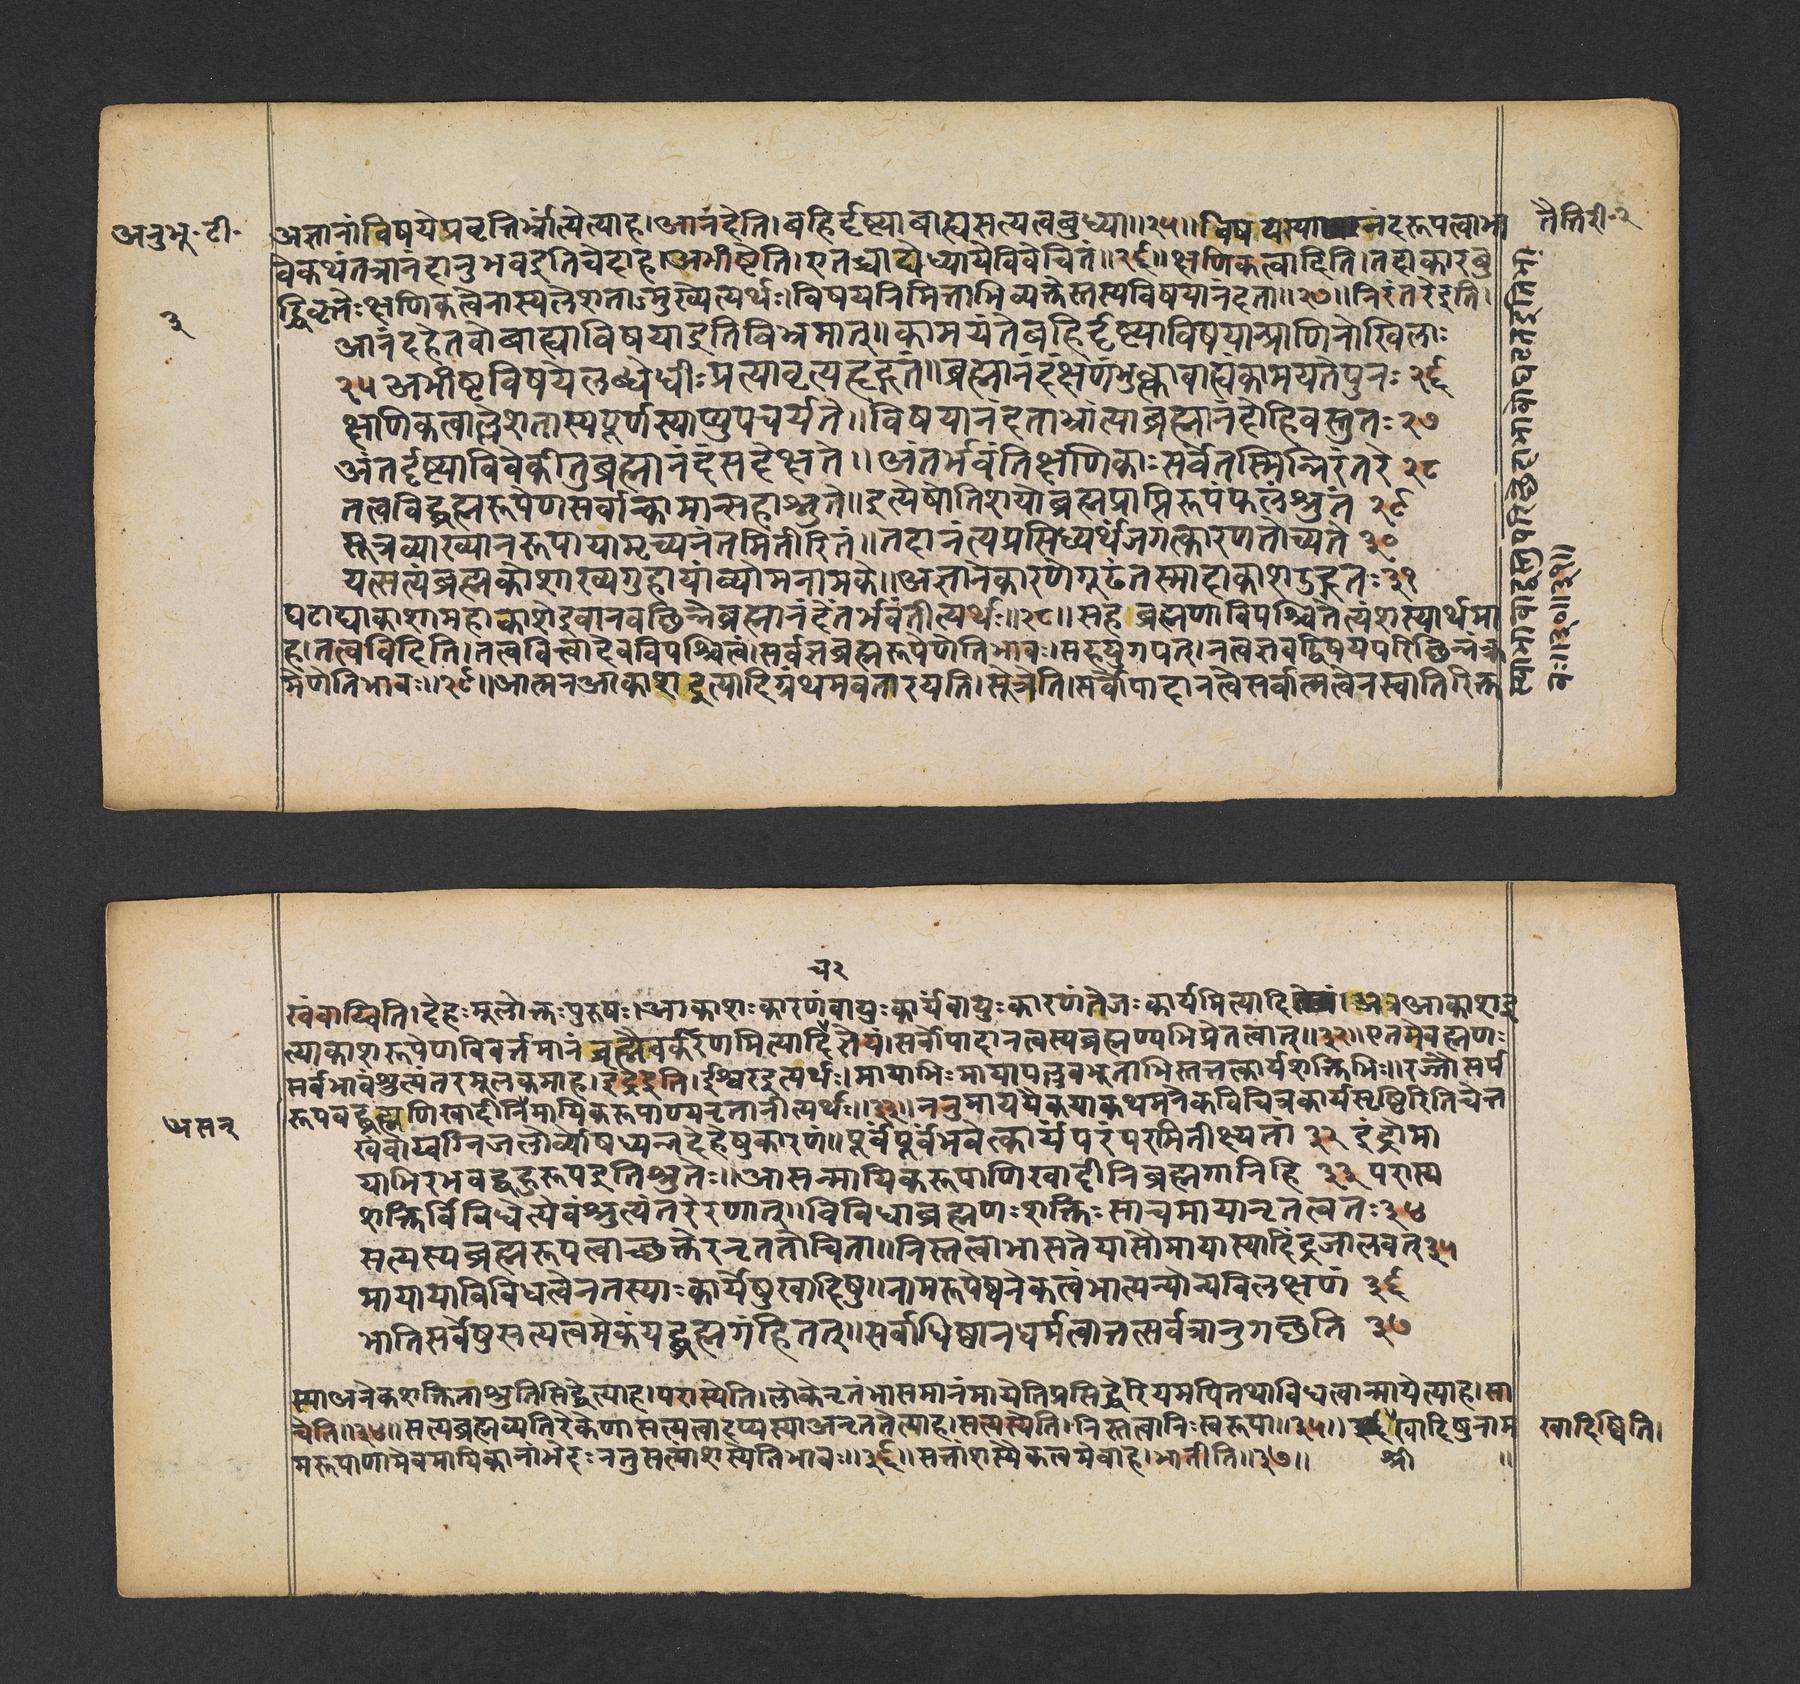 अनुभू-टी-
तैत्तिरी-२
३
अज्ञानांविषयेप्रवृत्तिर्भ्रांत्येत्याह।आनंदेति।बहिर्दृष्ट्याबाह्यसत्यत्वबुध्या॥२५॥विषयस्या नंदरूपत्वाभा
वेकथंतत्रानंदानुभवइतिचेदाह।अभीष्टेति।एतच्चाद्येध्यायेविवेचितं॥२६॥क्षणिकत्वादिति।तदाकारबु
द्धिवृत्तेःक्षणिकत्वेनास्यलेशताऽमुख्येत्यर्थः।विषयनिमित्ताभिव्यक्तेस्तस्यविषयानंदता॥२७॥निरंतरइति।
आनंदहेतवोबाह्याविषयाइतिविभ्रमात्॥कामयंतेबहिर्दृष्ट्याविषयान्प्राणिनोखिलाः
२५अभीष्टविषयेलब्धेधीःप्रत्यावृत्यहृद्गतं॥ब्रह्मानंदंक्षणंभुक्त्वाबाह्यंकामयतेपुनः२६
क्षणिकत्वाल्लेशतास्यपूर्णस्याप्युपचर्यते॥विषयानंदताभ्रांत्याब्रह्मानंदोहिवस्तुतः२७
अंतर्दृष्ट्याविवेकीतुब्रह्मानंदंसदेक्षते॥अंतर्भवंतिक्षणिकाःसर्वेतस्मिन्निरंतरे२८
तत्वविद्ब्रह्मरूपेणसर्वान्कामान्सहाश्नुते॥इत्येषोतिशयोब्रह्मप्राप्तिरूपंफलंश्रुतं२९
सूत्रव्याख्यानरूपायामृच्यनंतमितीरितं॥तदानंत्यप्रसिध्यर्थंजगत्कारणतोच्यते३०
यत्सत्यंब्रह्मकोशाख्यगुहायांव्योमनामके॥अज्ञानेकारणेगूढंतस्मादाकाशउद्गतः३१
घटाद्याकाशामहाकाशेइवानवछिन्नेब्रह्मानंदेंतर्भवंतीत्यर्थः॥२८॥सहब्रह्मणाविपश्चितेत्यंशस्यार्थमा
ह।तत्वविदिति।तत्ववित्त्वादेवविपश्चित्वं।सर्वज्ञब्रह्मरूपेणेतिभावः।सहयुगपत्।नत्वज्ञवद्विषयपरिछिन्नंक्र
मेणेतिभावः॥२९॥आत्मनआकाशइत्यादिग्रंथमवतारयति।सूत्रेति।सर्वोपादानत्वेसर्वात्मत्वेनस्वातिरिक्त
च२
खंवाय्विति।देहःमूलोक्तःपुरुषः।आकाशःकारणंवायुःकार्यंवायुःकारणंतेजःकार्यमित्यादि।अत्रआकाशइ
त्याकाशरूपेणविवर्त्तमानंब्रह्मैवकारणमित्यादिज्ञेयं।सर्वोपादानत्वस्यब्रह्मण्यभिप्रेतत्वात्॥३२॥एतमुवह्मणः
सर्वभावंश्रुत्यंतरमूलकमाह।इंद्रइति।ईश्वरइत्यर्थः।मायाभिःमायापल्लवभूताभिस्तत्तत्कार्यशक्तिभिः॥रज्जौसर्प
रूपवद्ब्रह्मणिखादीनिमायिकरूपाण्यनृतानीत्यर्थः॥३३॥ननुमाययैकयाकथमनेकविचित्रकार्यसृष्टिरितिचेत्त
असन्
खंवाय्वग्निजलोर्व्योषध्यन्नदेहेषुकारणं॥पूर्वंपूर्वंभवेत्कार्यंपरंपरमितीक्ष्यतां३२इंद्रोमा
याभिरभवद्बहुरूपइतिश्रुतः॥आसन्मायिकरूपाणिखादीनिब्रह्मगानिहि३३परास्य
शक्तिर्विविधेत्येवंश्रुत्यंतरेरणात्॥विविधाब्रह्मणःशक्तिःसाचमायानृतत्वतः३४
सत्यस्यब्रह्मरूपत्वाच्छक्तेरनृततोचिता॥निस्तत्वाभासतेयासौमायास्यादिंद्रजालवत्३५
मायायाविविधत्वेनतस्याःकार्येषुखादिषु॥नामरूपेष्वनेकत्वंभात्यन्योन्यविलक्षणं३६
भातिसर्वेषुसत्यत्वमेकंयद्ब्रह्मगंहितत्॥सर्वाधिष्ठानधर्मत्वात्तत्सर्वत्रानुगच्छति३७
स्याअनेकशक्तिताश्रुतिसिद्धेत्याह।परास्येति।लोकेनृतंभासमानंमायेतिप्रसिद्धेरियमपितथाविधत्वान्मायेत्याह।सा
चेति॥३४॥सत्यब्रह्मव्यतिरेकेणासत्यत्वादप्यस्याअनृततेत्याह।सत्यस्येति।निस्तत्वानिःस्वरूपा॥३५॥खादिषुनाम
खादिष्विति।
मरूपाणामेवमायिकानांभेदःनतुसत्यांशस्येतिभावः॥३६॥सत्तांशस्यैकत्वमेवाह।भातीति॥३७॥ श्री ॥